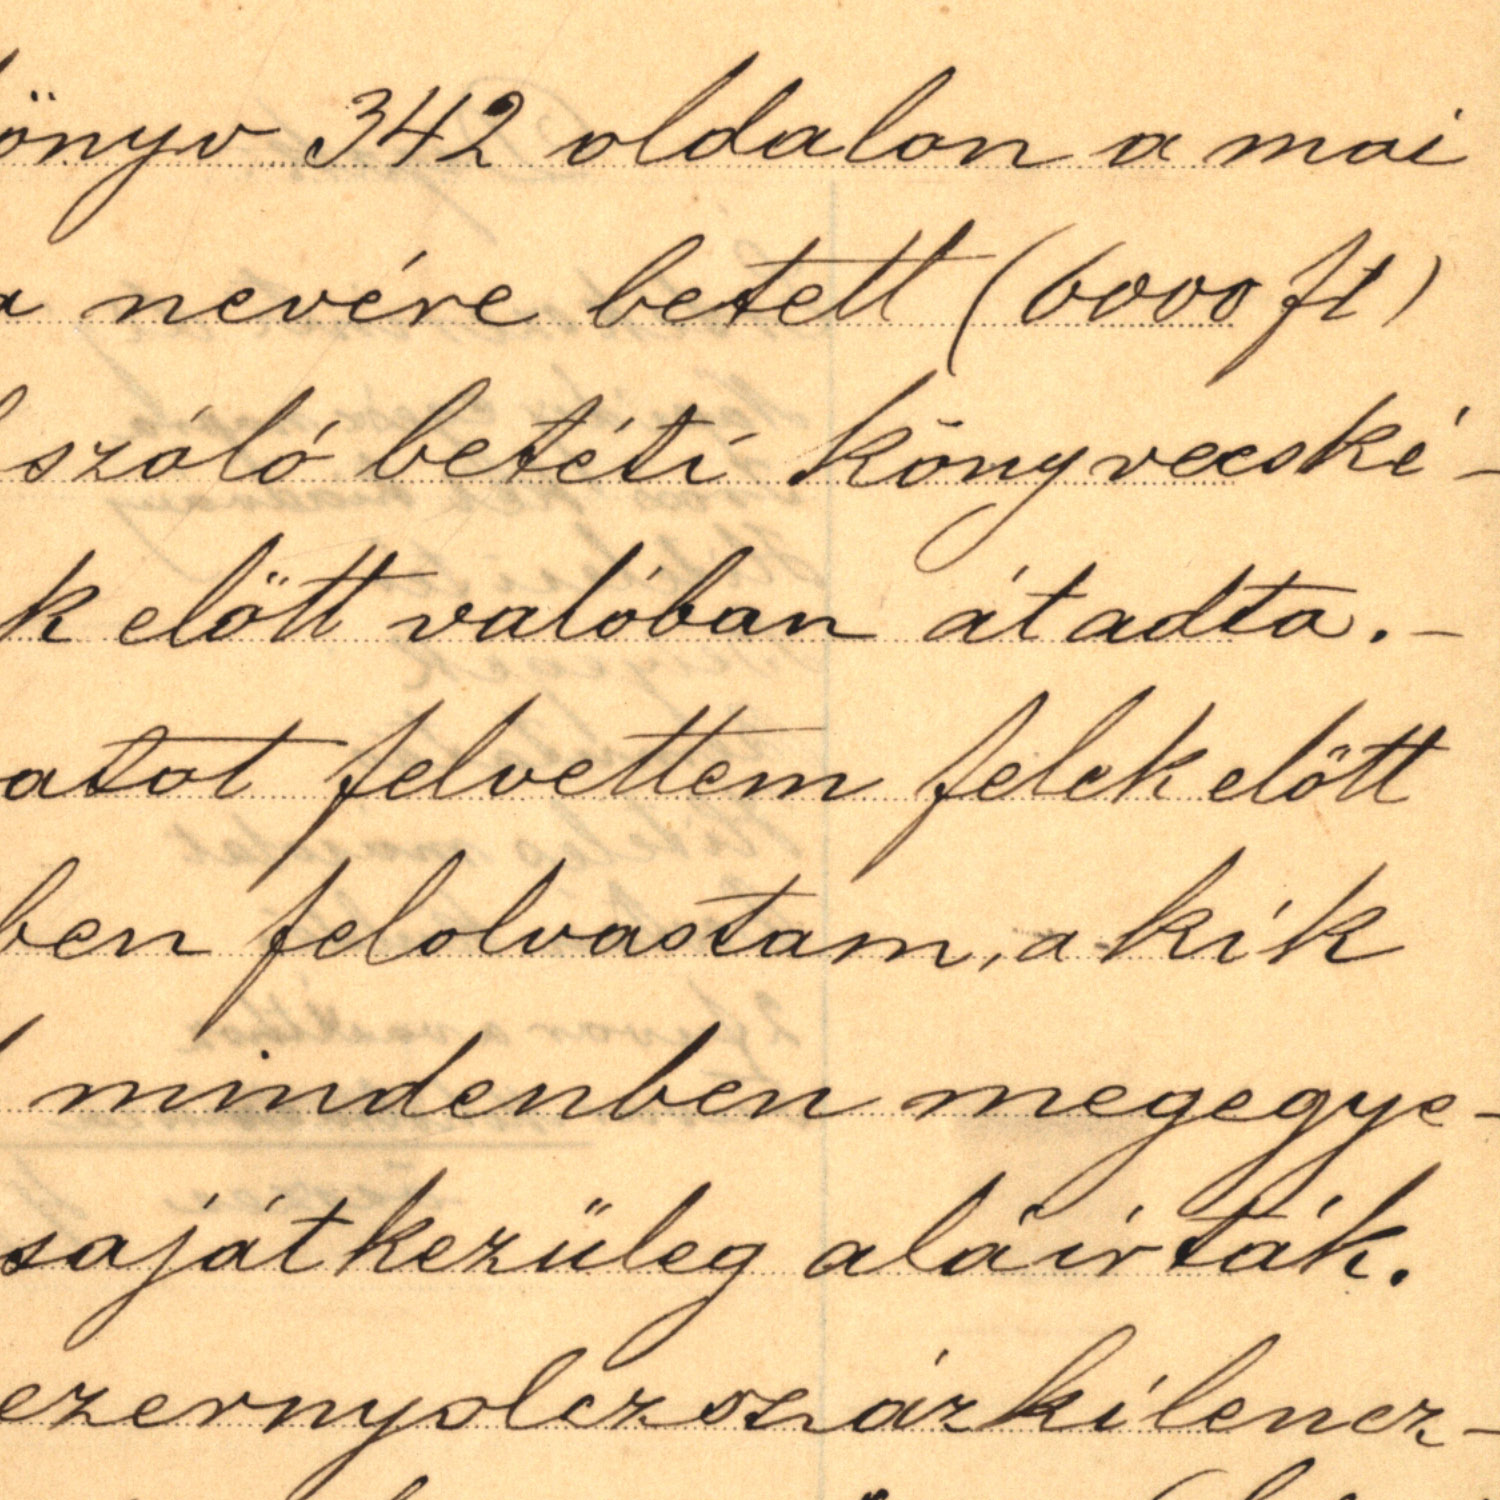 könyv 342 oldalon a mai
a nevére betett (6000 ft)
szóló betéti könyvecské-
k előtt valóban átadta.-
atot felvettem felek előtt
ben felolvastam, a kik
mindenben megegye-
sajátkezüleg aláirták.
ezernyolczszázkilencz-